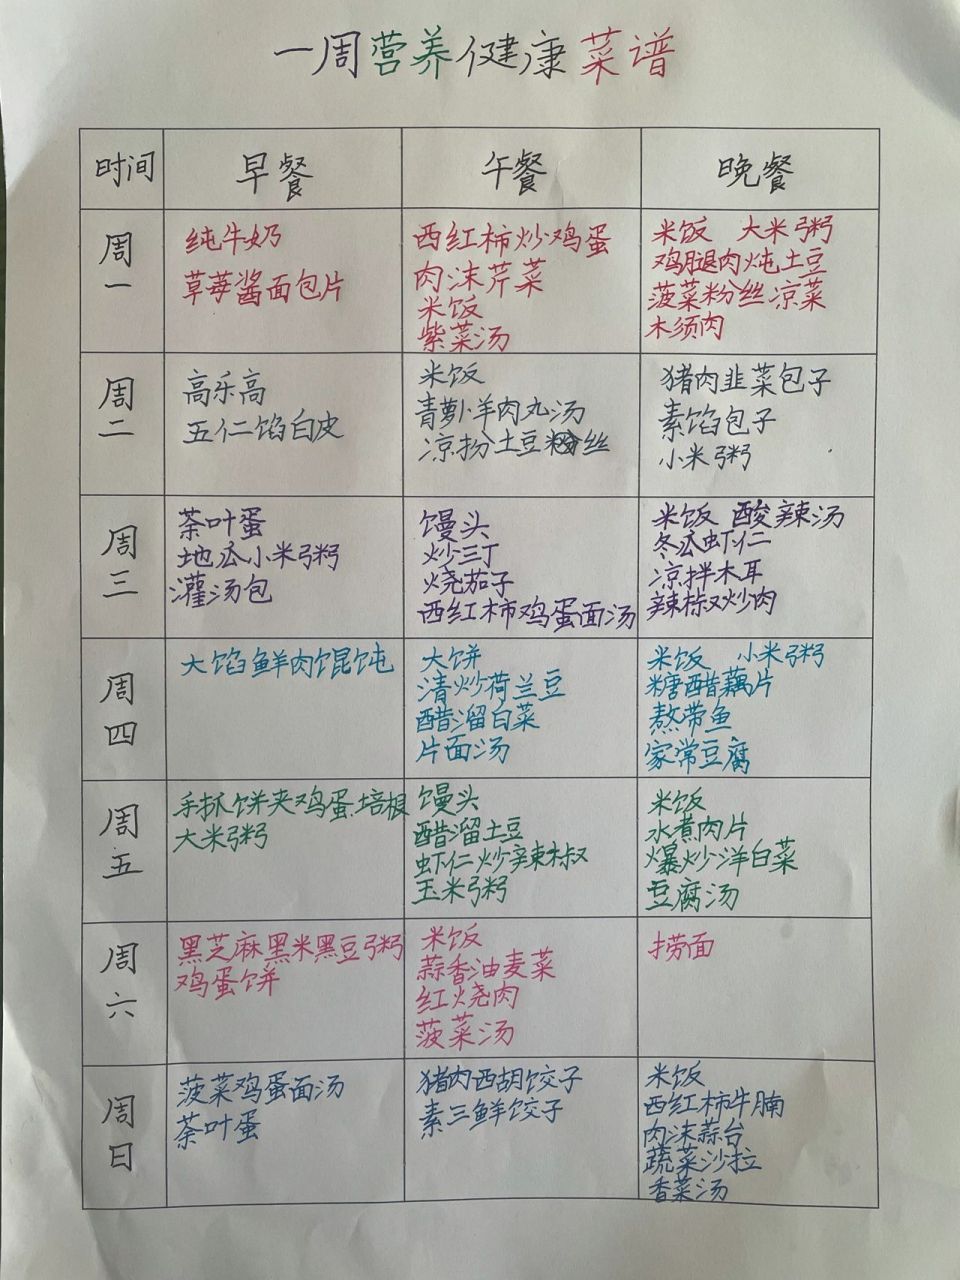 一周营养健康菜谱
时间 早餐 午餐 晚餐
周一
纯牛奶
草莓酱面包片
西红柿炒鸡蛋
肉沫芹菜
米饭
紫菜汤
米饭 大米粥
鸡腿肉炖土豆
菠菜粉丝凉菜
木须肉
周二
高乐高
五仁馅白皮
米饭
青萝卜羊肉丸汤
凉扮土豆丝
猪肉韭菜包子
素馅包子
小米粥
周三
茶叶蛋
地瓜小米粥
灌汤包
馒头
炒三丁
烧茄子
西红柿鸡蛋面汤
米饭 酸辣汤
冬瓜虾仁
凉拌木耳
辣椒炒肉
周四
大馅鲜肉馄饨
大饼
清炒荷兰豆
醋溜白菜
片面汤
米饭 小米粥
糖醋藕片
熬带鱼
家常豆腐
周五
手抓饼夹鸡蛋.培根
大米粥
馒头
醋溜土豆
虾仁炒辣椒
玉米粥
米饭
水煮肉片
爆炒洋白菜
豆腐汤
周六
黑芝麻黑米黑豆粥
鸡蛋饼
米饭
蒜香油麦菜
红烧肉
菠菜汤
捞面
周日
菠菜鸡蛋面汤
茶叶蛋
猪肉西胡饺子
素三鲜饺子
米饭
西红柿牛腩
肉沫蒜台
蔬菜沙拉
香菜汤